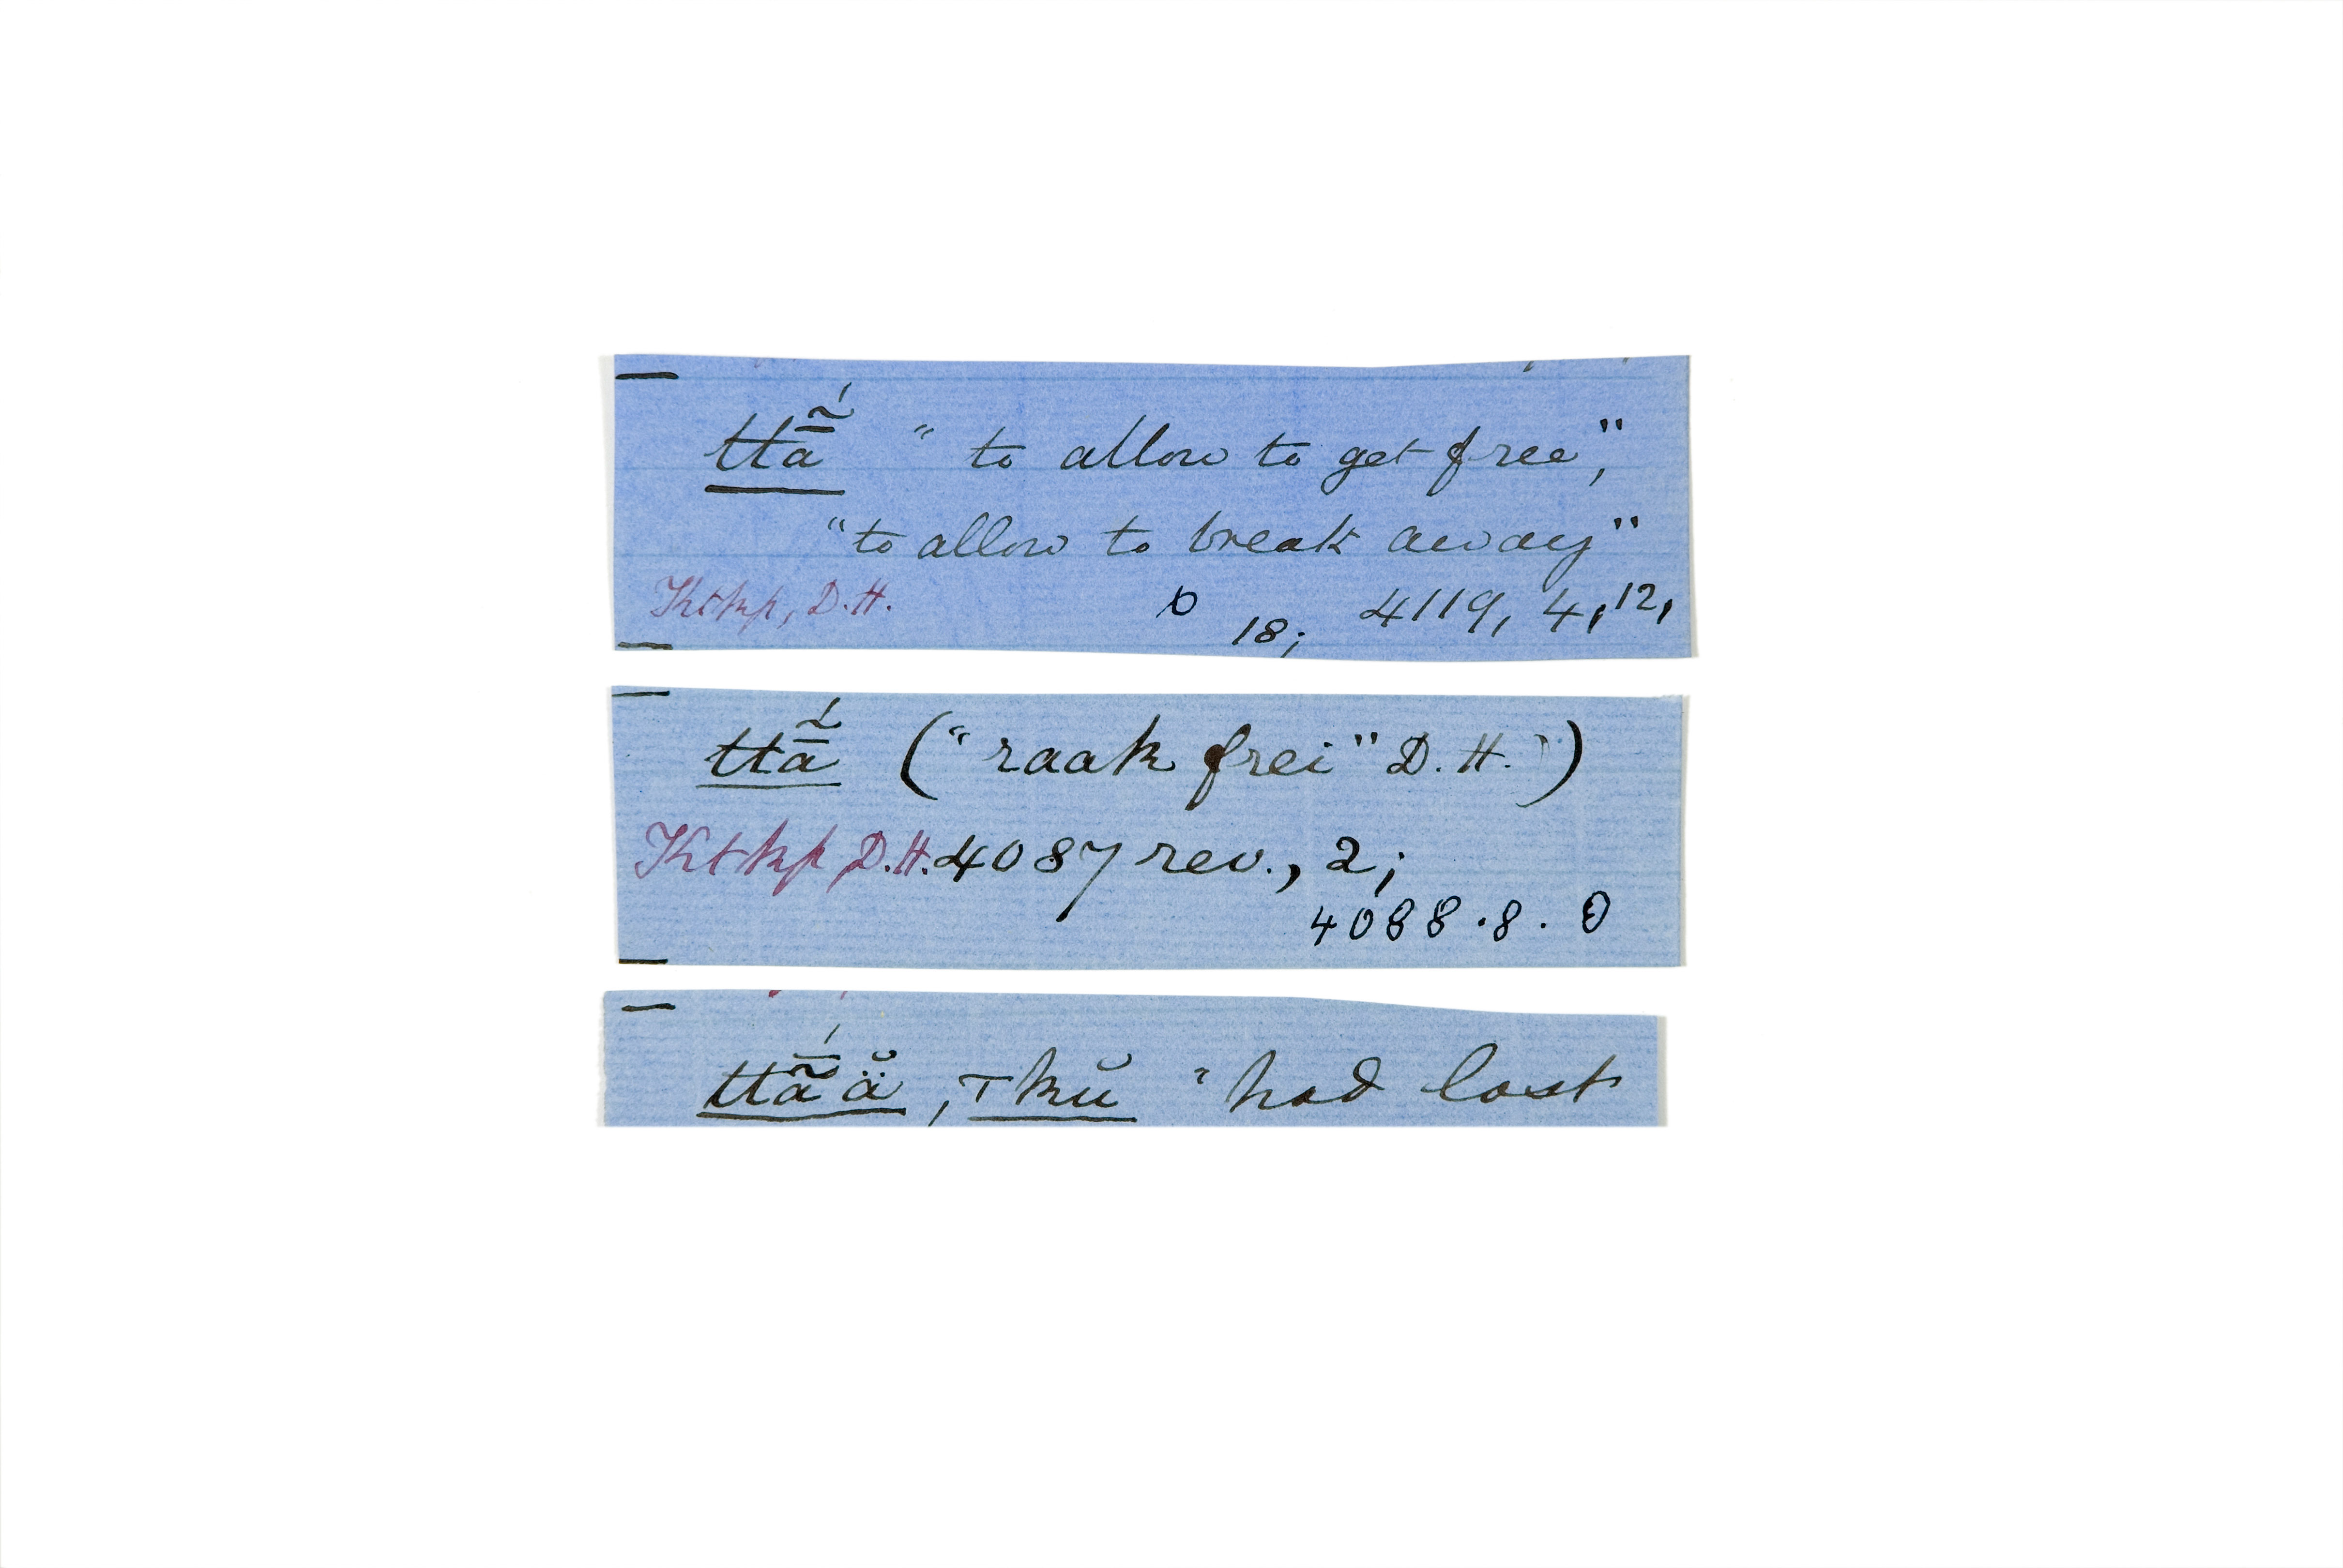 ttā̰́ " to allow to get free",
"to allow to break away"
Ktkp, D.H. 4119, 4, 12,
18;
ttā̰́ ("raak frei" D.H.)
Ktkp D.H. 4087 rev., 2;
4088.8.0
ttā̰́ ä̆, ⊤kŭ "had lost